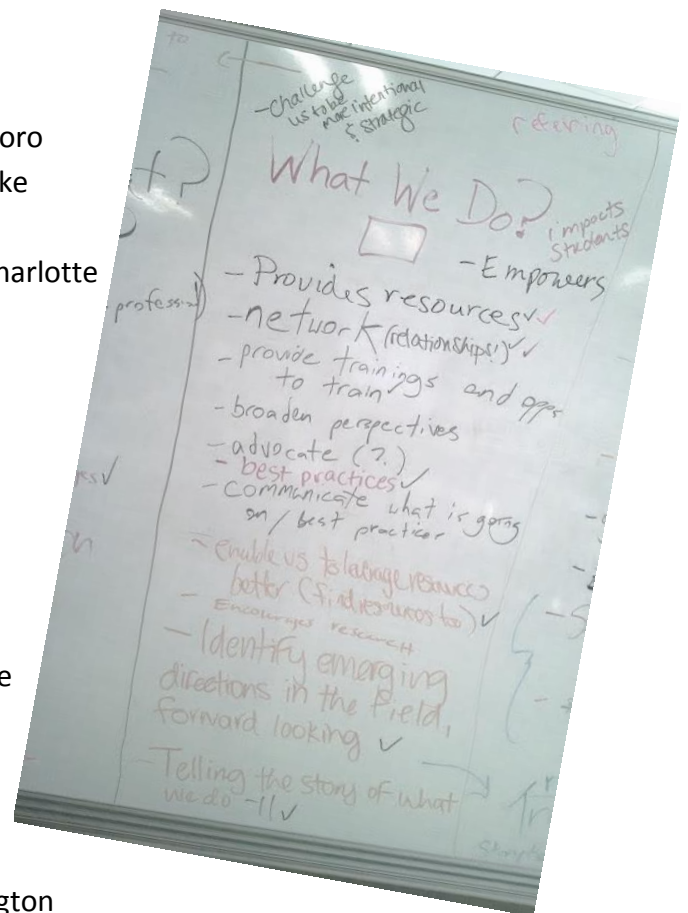 oro
ke
harlotte
e
gton
to
-Challenge
us to be
more intentional
& strategic
referring
t?
What We Do?
impacts
students
- Empowers
professional)
- Provides resources ✓✓
- network (relationships!) ✓✓
- provide trainings and opps
to train ✓
- broaden perspectives
- advocate (?)
- best practices ✓
ss ✓
- communicate what is going
on / best practices
n
- enable us to leverage resources
better (find resources too) ✓
- Encourages research
- Identify emerging
directions in the field,
forward looking ✓
- Telling the story of what
we do -11 ✓